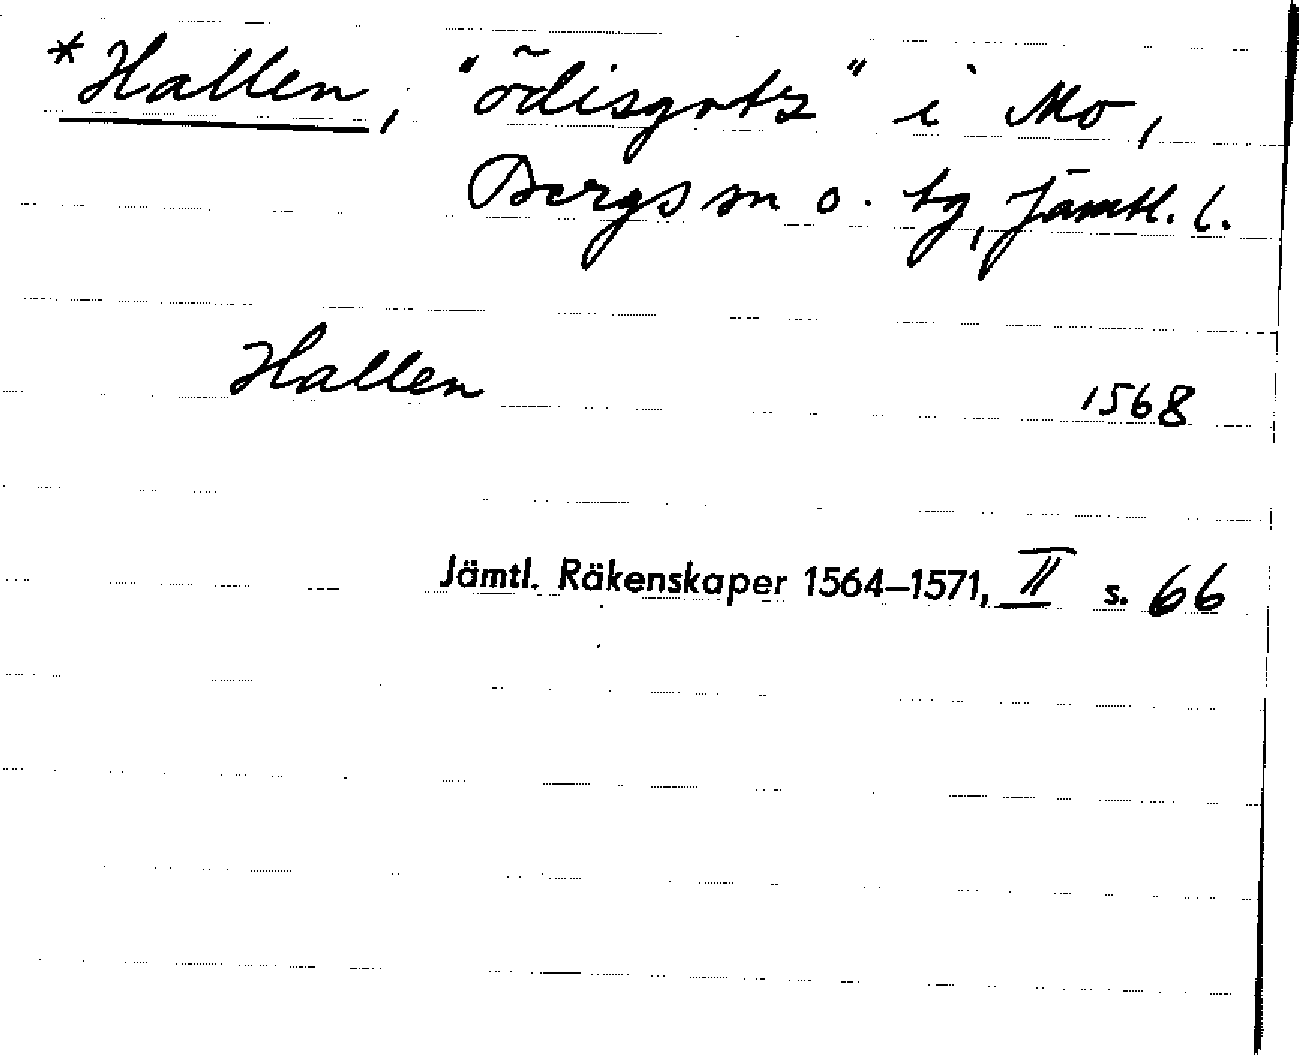 *Hallen, "ödisgotz" i Mo,
Bergs sn o. tg, Jämtl. l.
Hallen 1568
Jämtl. Räkenskaper 1564–1571, II s. 66